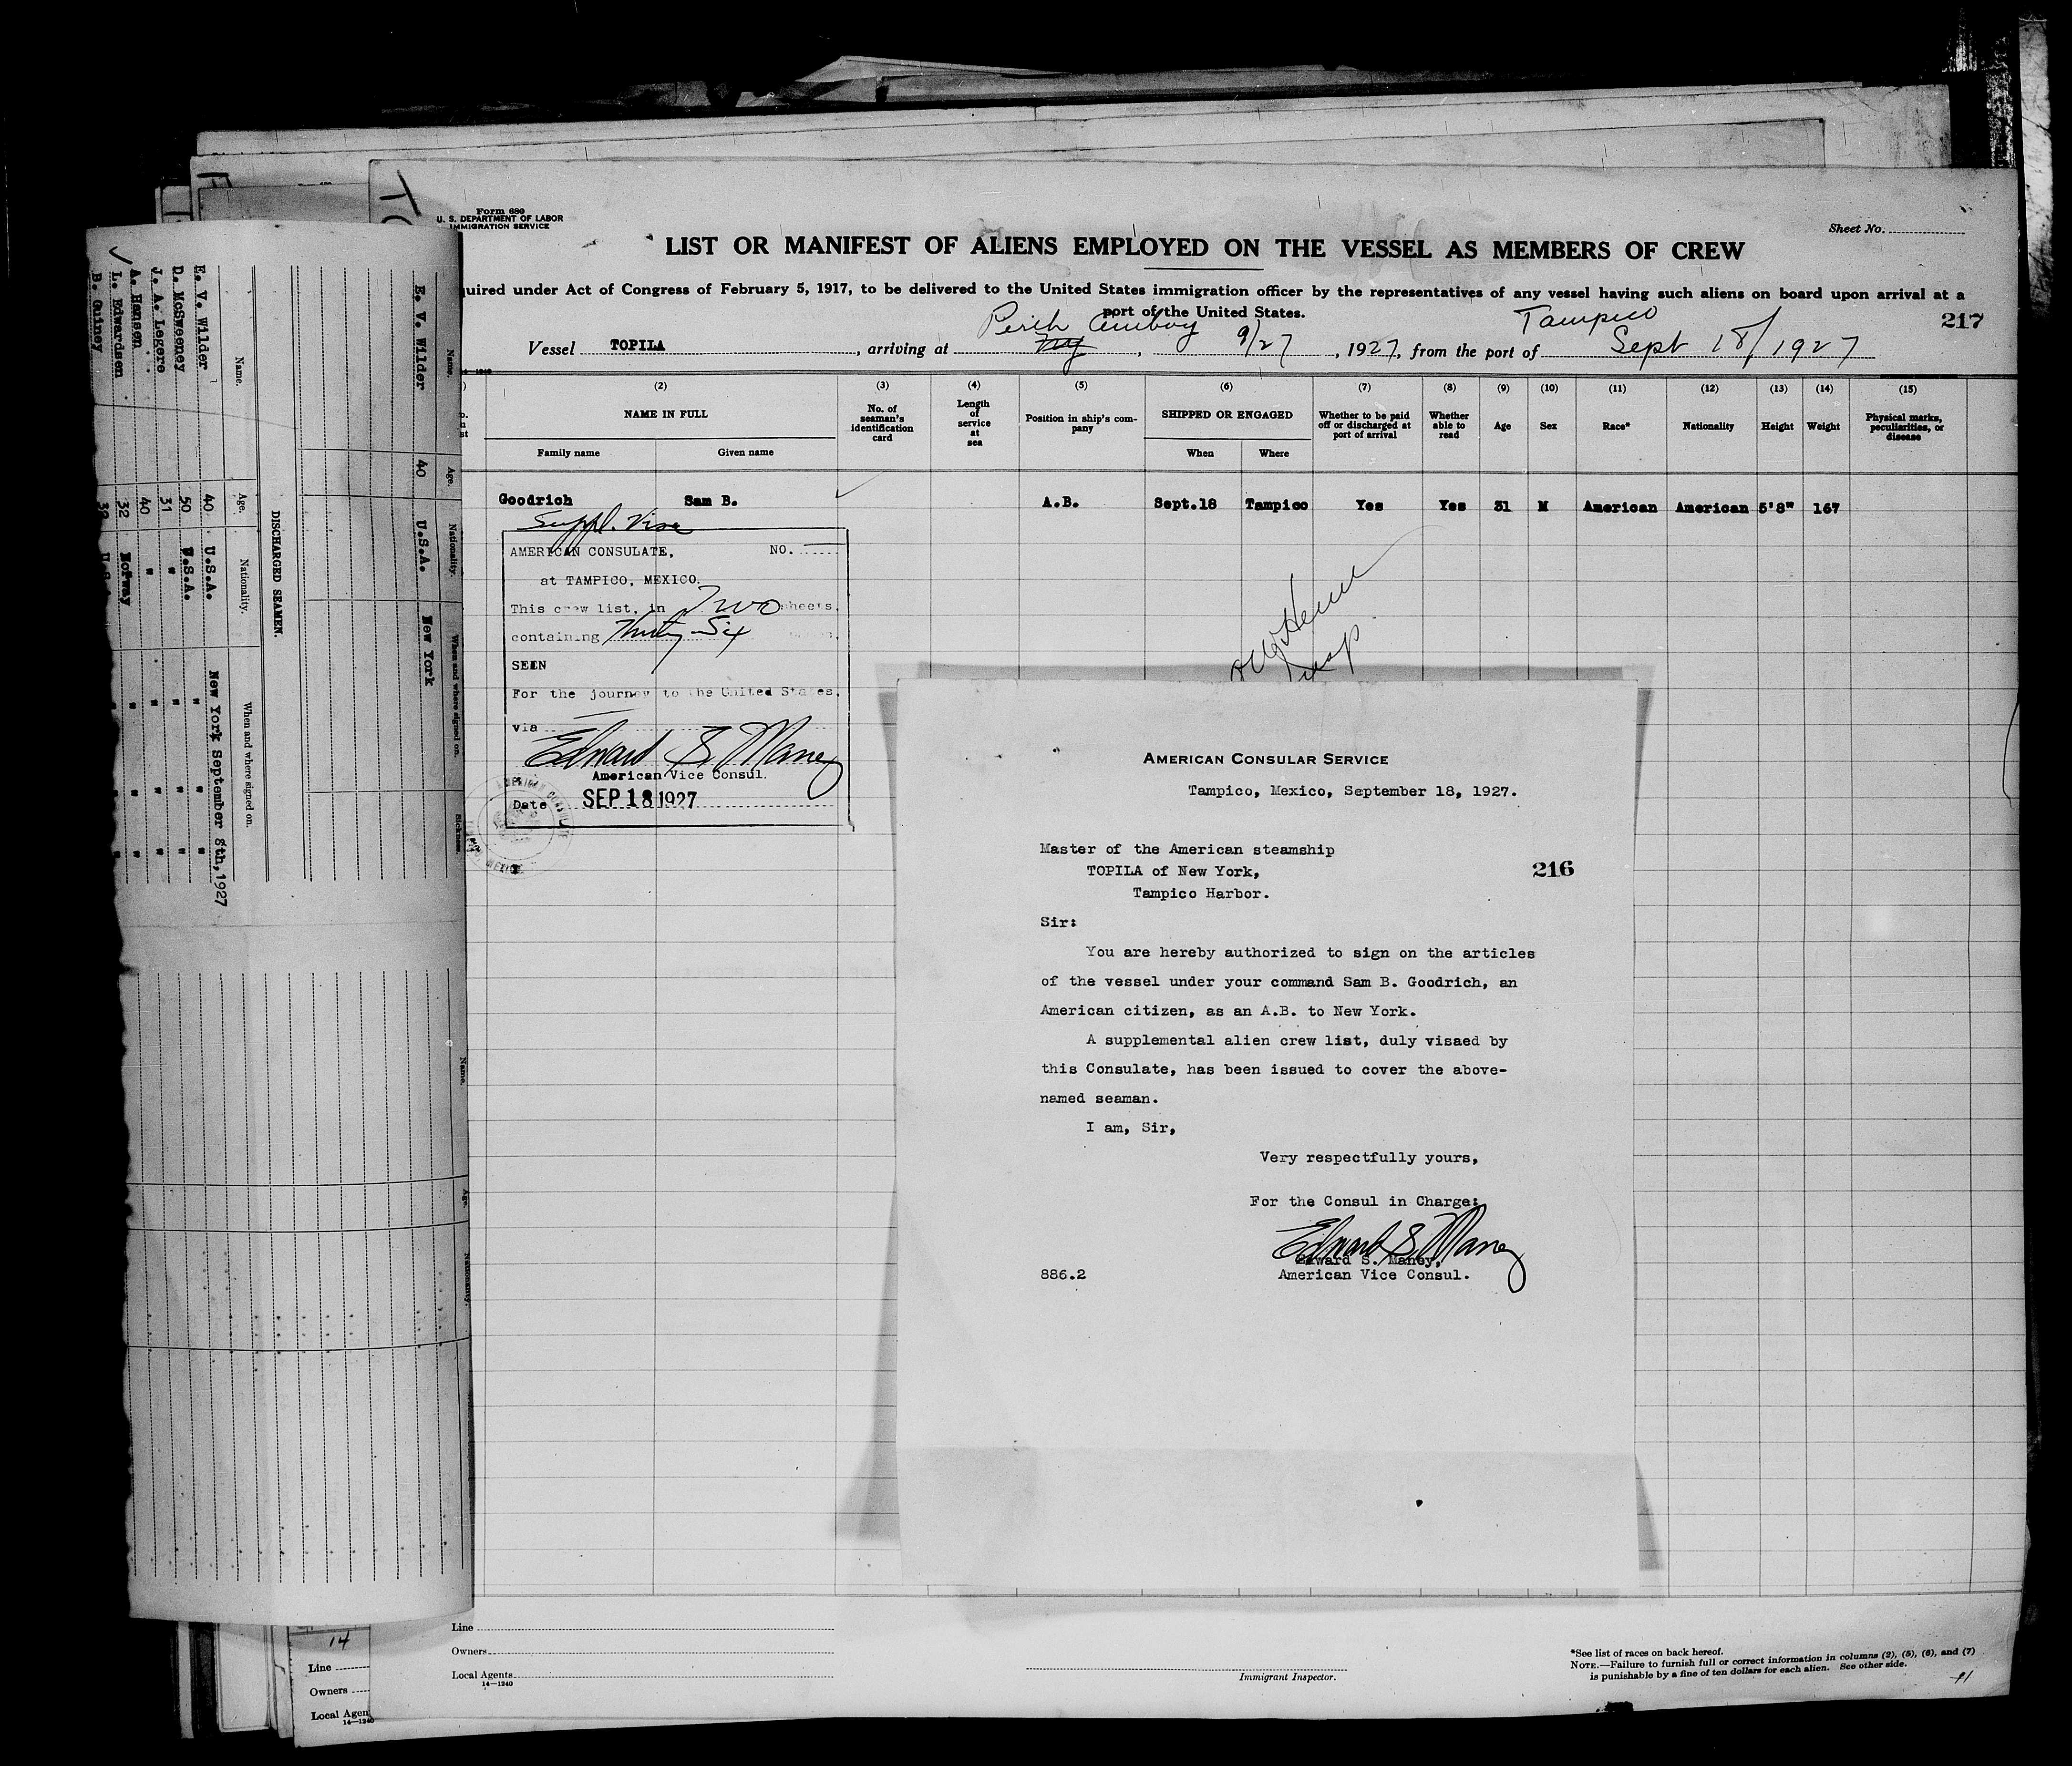 Form 680
U. S. DEPARTMENT OF LABOR
IMMIGRATION SERVICE
Sheet No.
LIST OR MANIFEST OF ALIENS EMPLOYED ON THE VESSEL AS MEMBERS OF CREW
uired under Act of Congress of February 5, 1917, to be delivered to the United States immigration officer by the representatives of any vessel having such aliens on board upon arrival at a
port of the United States.
217
Vessel TOPILA, arriving at Perth Amboy, 9/27, 1927, from the port of Tampico Sept 18/1927
(2) (3) (4) (5) (6) (7) (8) (9) (10) (11) (12) (13) (14) (15)
NAME IN FULL
Family name Given name
No. of seaman's identification card
Length of service at sea
Position in ship's company
SHIPPED OR ENGAGED
When Where
Whether to be paid off or discharged at port of arrival
Whether able to read
Age
Sex
Race*
Nationality
Height
Weight
Physical marks, peculiarities, or disease
Goodrich Sam B. A.B. Sept.18 Tampico Yes Yes 31 M American American 5'8" 167
Suppl. Visa
AMERICAN CONSULATE, NO.
at TAMPICO, MEXICO.
This crew list, in Two sheets,
containing Thirty-Six
SEEN
For the journey to the United States,
via
Edward S Maney
American Vice Consul.
Date SEP 18 1927
AMERICAN CONSULAR SERVICE
Tampico, Mexico, September 18, 1927.
Master of the American steamship
TOPILA of New York,
Tampico Harbor.
216
Sir:
You are hereby authorized to sign on the articles
of the vessel under your command Sam B. Goodrich, an
American citizen, as an A.B. to New York.
A supplemental alien crew list, duly visaed by
this Consulate, has been issued to cover the above-
named seaman.
I am, Sir,
Very respectfully yours,
For the Consul in Charge:
Edward S Maney
Edward S. Maney,
886.2 American Vice Consul.
Line
Owners
Local Agents
14—1240
Immigrant Inspector.
*See list of races on back hereof.
NOTE.—Failure to furnish full or correct information in columns (2), (5), (6), and (7)
is punishable by a fine of ten dollars for each alien. See other side.
14
Line
Owners
Local Agen
14—1240
Name. Age. Nationality. When and where signed on. Sickness.
E. V. Wilder 40 U.S.A. New York
DISCHARGED SEAMEN.
Name. Age. Nationality. When and where signed on.
E. V. Wilder 40 U.S.A. New York September 8th, 1927
D. McSweeney 50 U.S.A. " " "
J. A. Legere 31 " " " "
A. Hansen 40 " " " "
L. Edwardsen 32 Norway " " "
B. Quiney
Name. Age. Nationality.